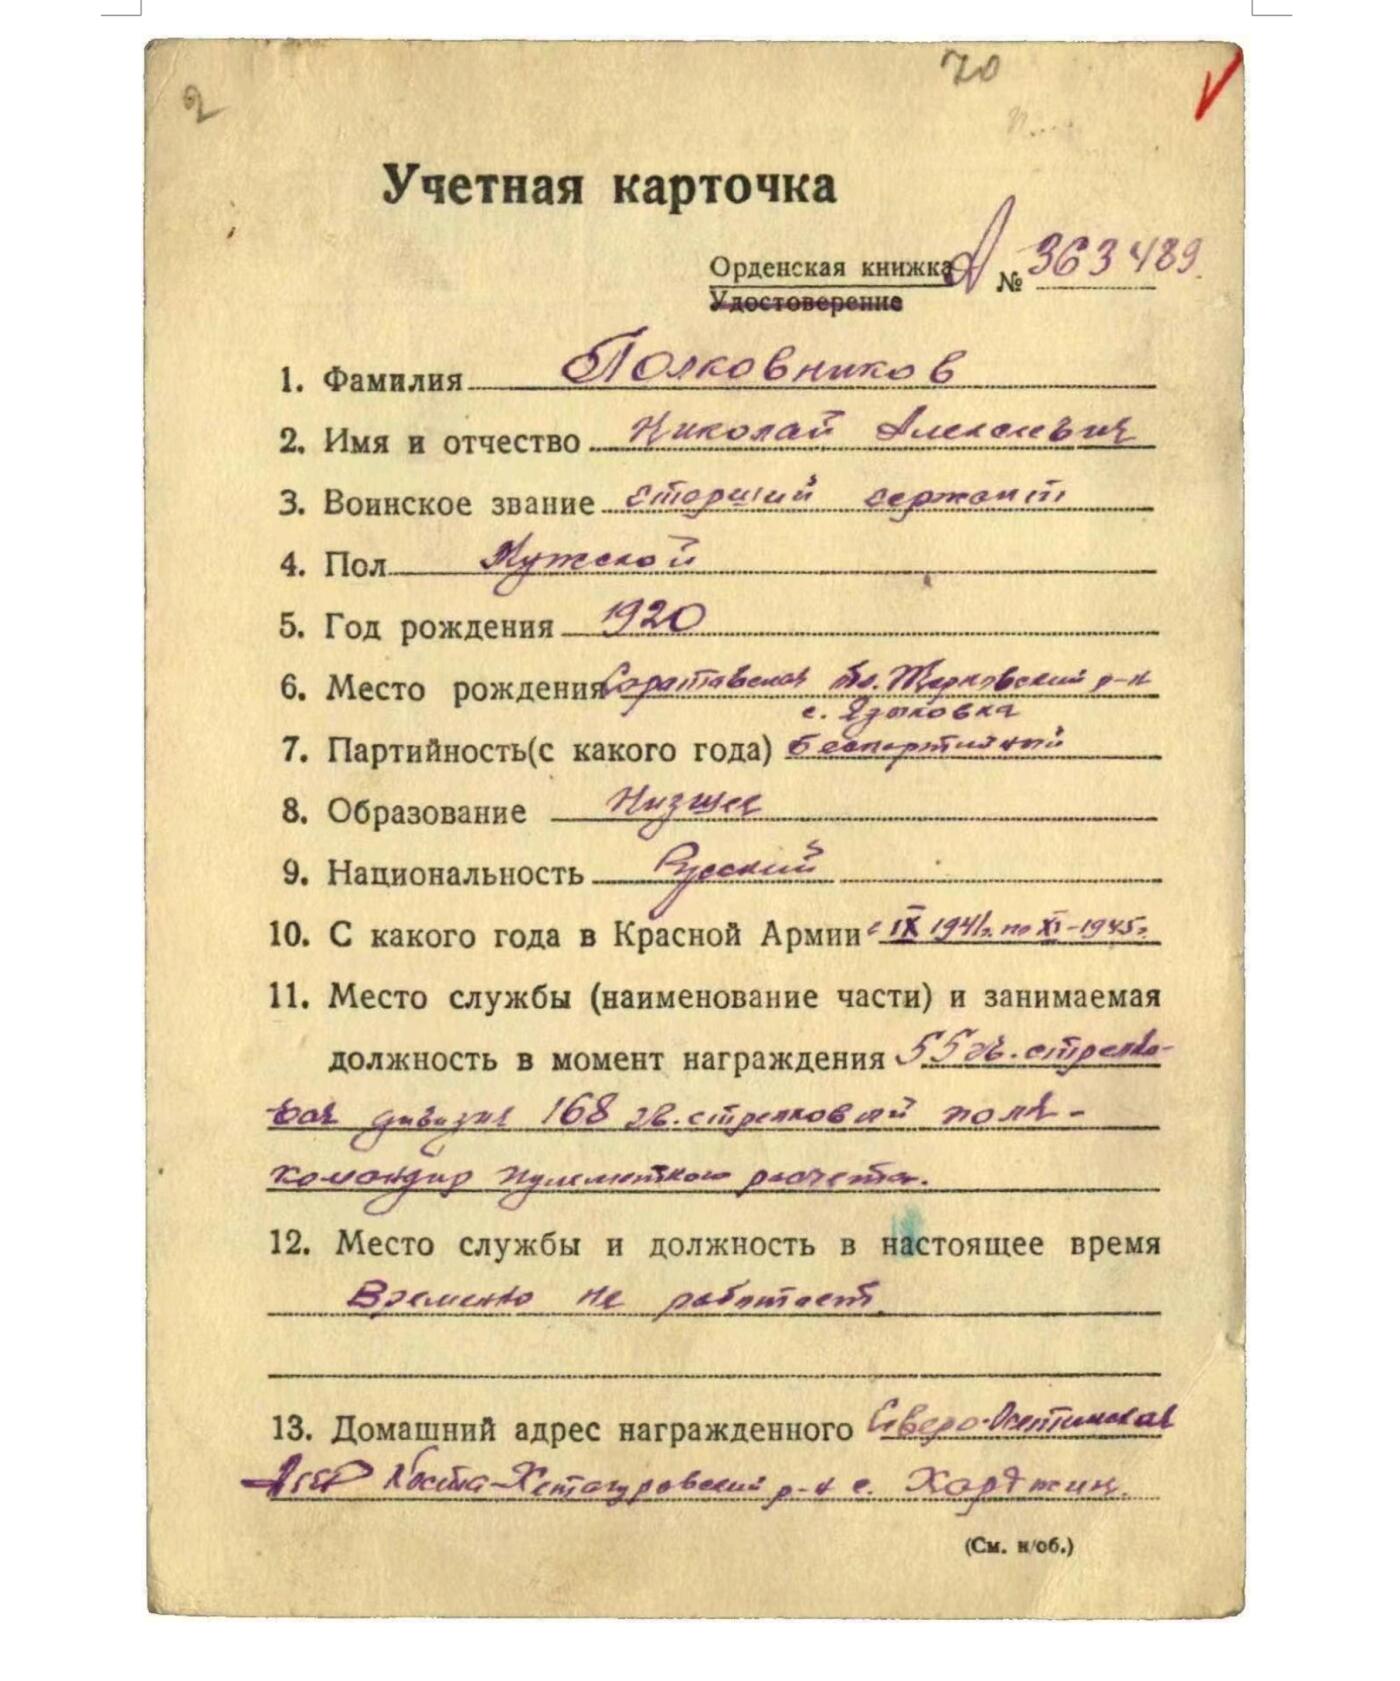 2
70
Учетная карточка
Орденская книжка А № 363489
Удостоверение
1. Фамилия Полковников
2. Имя и отчество Николай Алексеевич
3. Воинское звание Старший сержант
4. Пол Мужской
5. Год рождения 1920
6. Место рождения Саратовская обл. р-н
с. Языковка
7. Партийность (с какого года) беспартийный
8. Образование Низшее
9. Национальность Русский
10. С какого года в Красной Армии с IX 1941г. по XI-1945г.
11. Место службы (наименование части) и занимаемая
должность в момент награждения 55 гв. стрелко-
вая дивизия 168 гв. стрелковый полк -
командир пулеметного расчета.
12. Место службы и должность в настоящее время
Временно не работает
13. Домашний адрес награжденного Северо-Осетинская
АССР Коста-Хетагуровский р-н с. Хорджин.
(См. н/об.)